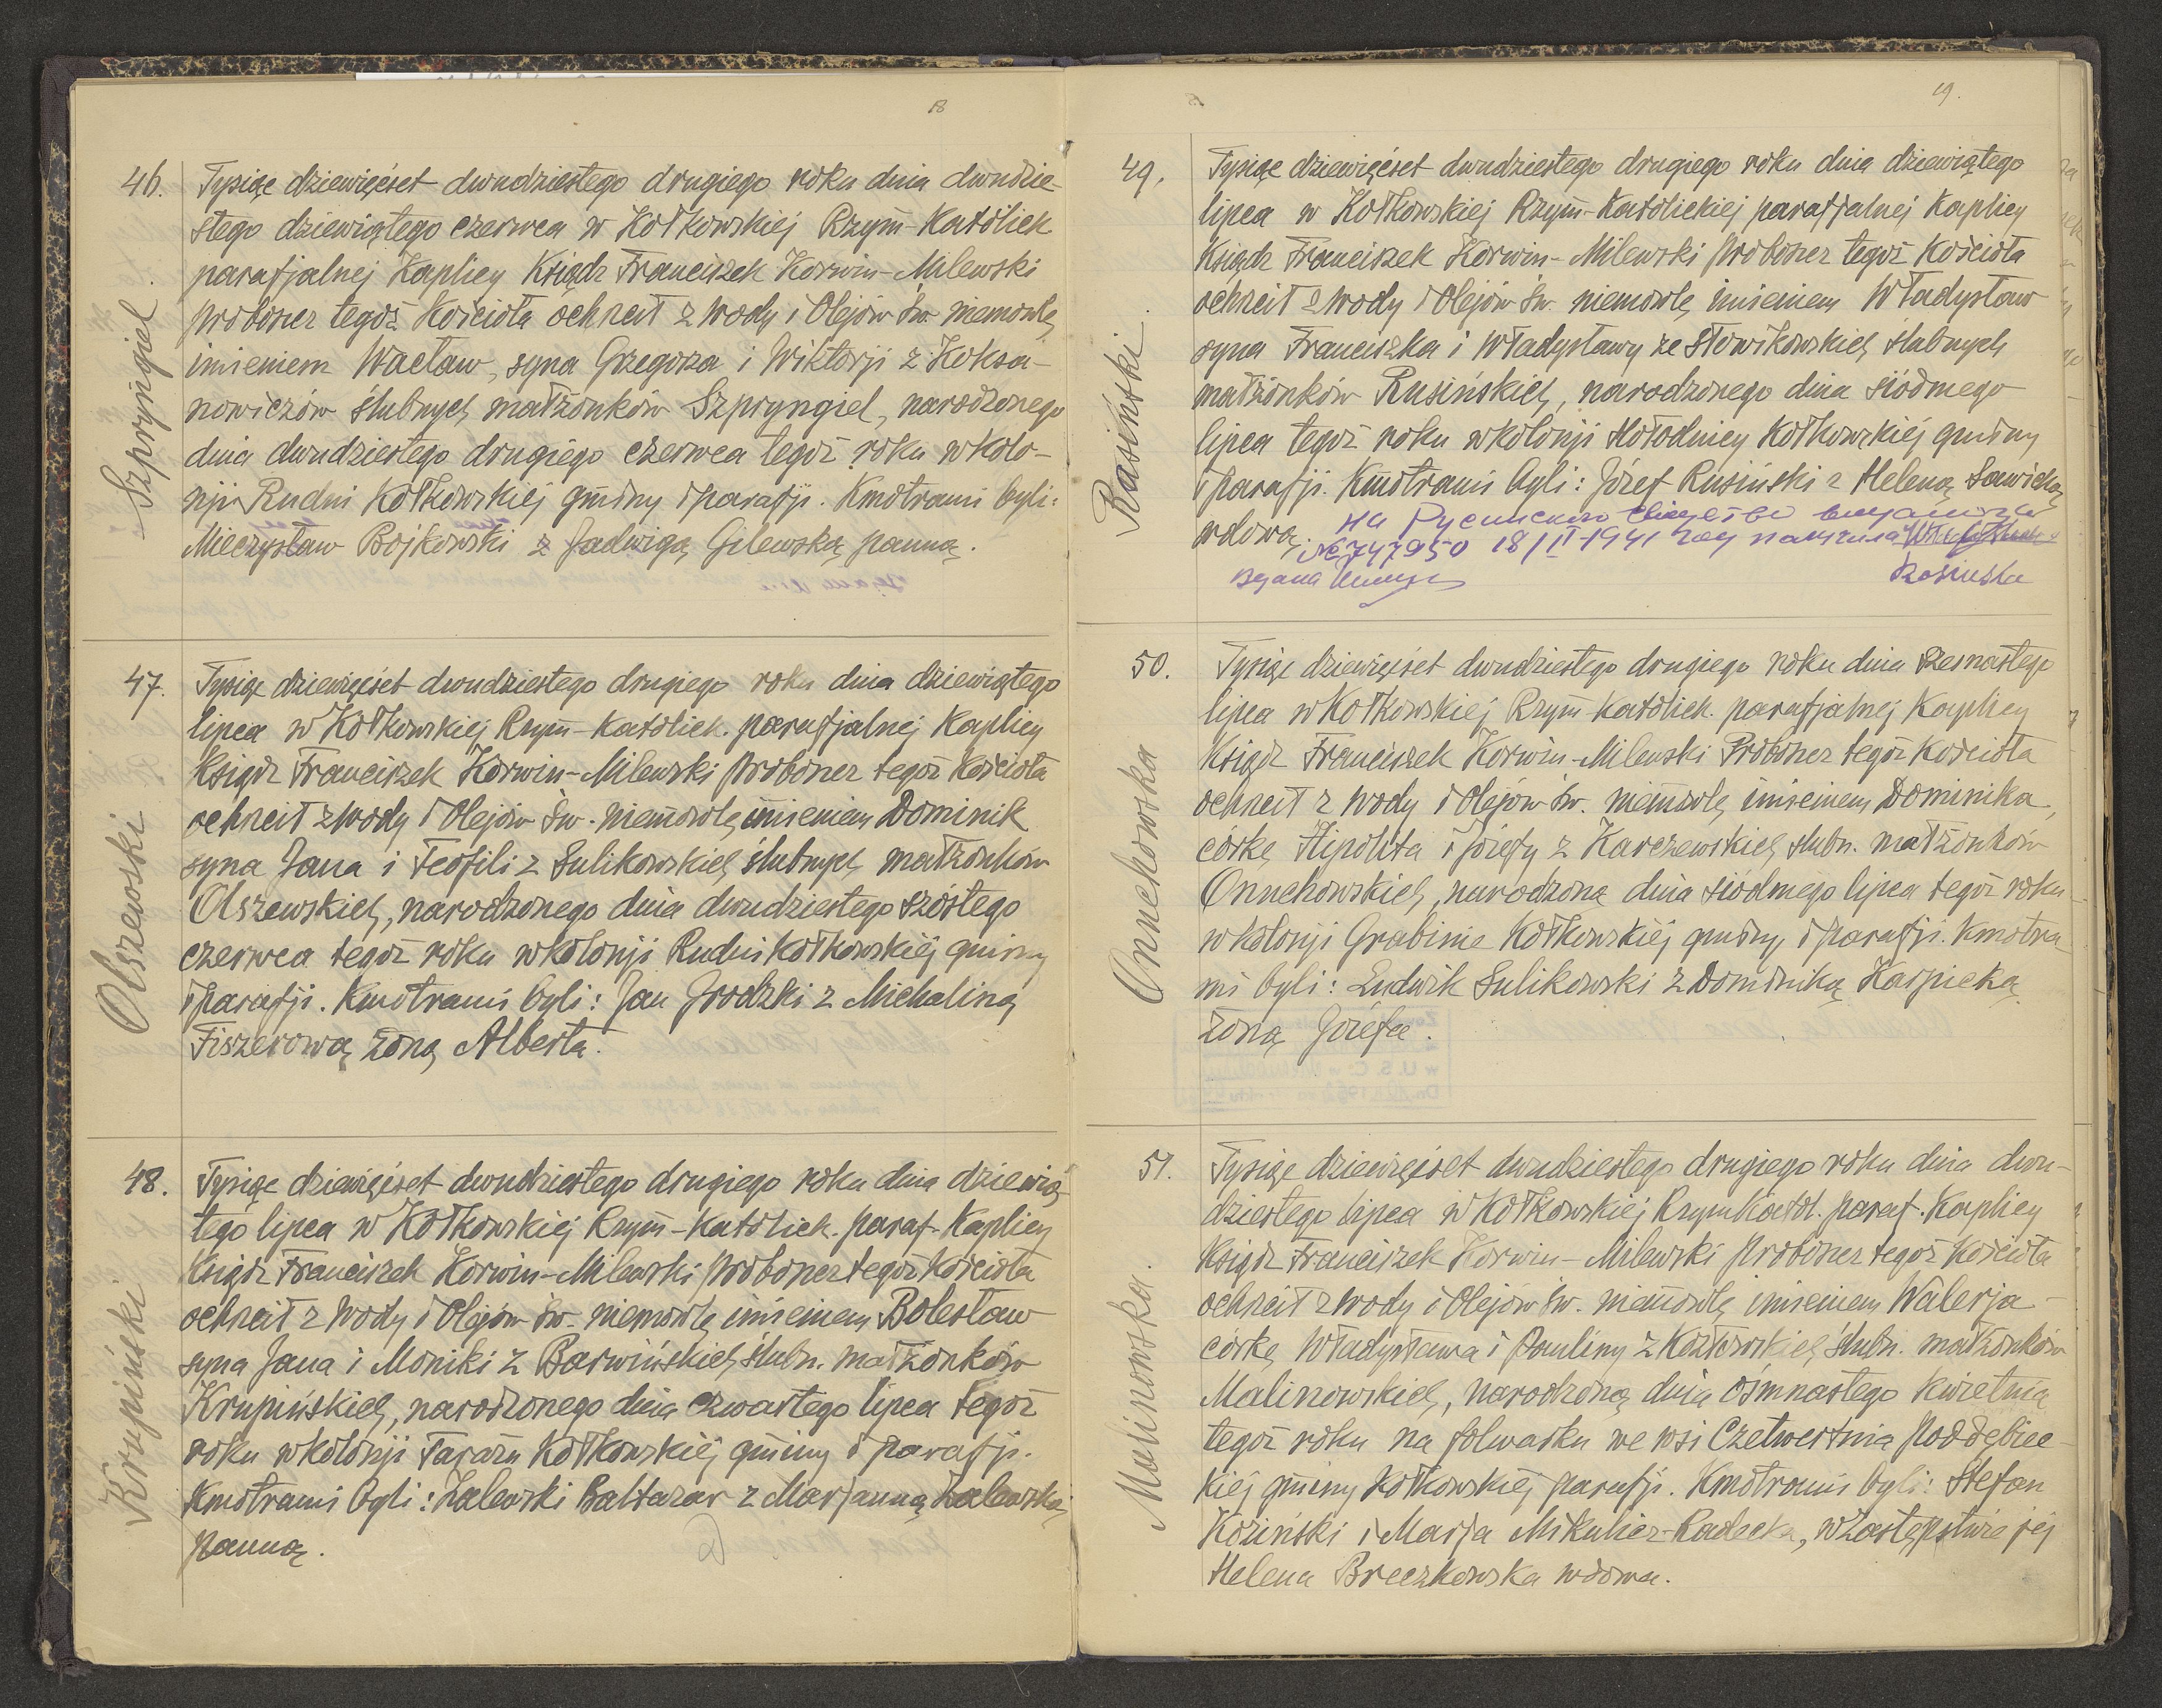 18
46.
Szpryngiel
Tysiąc dziewięćset dwudziestego drugiego roku dnia dwudzie-
stego dziewiątego czerwca w Kołkowskiej Rzym-Katolick.
parafjalnej Kaplicy Ksiądz Franciszek Korwin-Milewski
proboszcz tegoż Kościoła ochrcił z wody i Olejów Św. niemowlę
imieniem Wacław, syna Grzegorza i Wiktorji z Koksa-
nowiczów ślubnych małżonków Szpryngiel, narodzonego
dnia dwudziestego drugiego czerwca tegoż roku w kolo-
nji Rudni Kołkowskiej gminy i parafji. Kmotrami byli:
Mieczysław Bojkowski z Jadwigą Gilewską panną.
47.
Olszewski
Tysiąc dziewięćset dwudziestego drugiego roku dnia dziewiątego
lipca w Kołkowskiej Rzym-Katolick. parafjalnej Kaplicy
Ksiądz Franciszek Korwin-Milewski proboszcz tegoż Kościoła
ochrcił z wody i Olejów Św. niemowlę imieniem Dominik
syna Jana i Teofili z Sulikowskich ślubnych małżonków
Olszewskich, narodzonego dnia dwudziestego szóstego
czerwca tegoż roku w kolonji Rudni Kołkowskiej gminy
i parafji. Kmotrami byli: Jan Grodzki z Michaliną
Fiszerową żoną Alberta.
48.
Krupiński
Tysiąc dziewięćset dwudziestego drugiego roku dnia dziewią-
tego lipca w Kołkowskiej Rzym-Katolick. paraf. Kaplicy
Ksiądz Franciszek Korwin-Milewski proboszcz tegoż Kościoła
ochrcił z wody i Olejów Św. niemowlę imieniem Bolesław
syna Jana i Moniki z Barwińskich ślubn. małżonków
Krupińskich, narodzonego dnia czwartego lipca tegoż
roku w kolonji Taraża Kołkowskiej gminy i parafji.
Kmotrami byli: Zalewski Baltazar z Marjanną Zalewską
panną.
19.
49.
Rasiński.
Tysiąc dziewięćset dwudziestego drugiego roku dnia dziewiątego
lipca w Kołkowskiej Rzym-Katolickiej parafjalnej Kaplicy
Ksiądz Franciszek Korwin-Milewski proboszcz tegoż Kościoła
ochrcił z wody i Olejów Św. niemowlę imieniem Władysław
syna Franciszka i Władysławy ze Słowikowskich ślubnych
małżonków Rusińskich, narodzonego dnia siódmego
lipca tegoż roku w kolonji Hołodnicy Kołkowskiej gminy
i parafji. Kmotrami byli: Józef Rusiński z Heleną Sawicką
wdową.
На Русинского
№747950 18/II-1941
Rosińska
50.
Onuchowska
Tysiąc dziewięćset dwudziestego drugiego roku dnia szesnastego
lipca w Kołkowskiej Rzym-Katolick. parafjalnej Kaplicy
Ksiądz Franciszek Korwin-Milewski Proboszcz tegoż Kościoła
ochrcił z wody i Olejów Św. niemowlę imieniem Dominika
córkę Hipolita i Józefy z Karczewskich ślubn. małżonków
Onuchowskich, narodzoną dnia siódmego lipca tegoż roku
w kolonji Grabinie Kołkowskiej gminy i parafji. Kmotra
mi byli: Ludwik Sulikowski z Dominiką Karpicką
żoną Józefa.
51.
Malinowska.
Tysiąc dziewięćset dwudziestego drugiego roku dnia dwu-
dziestego lipca w Kołkowskiej Rzym Katol. paraf. Kaplicy
Ksiądz Franciszek Korwin-Milewski proboszcz tegoż Kościoła
ochrcił z wody i Olejów Św. niemowlę imieniem Walerja
córkę Władysława i Pauliny z Kozłowskich ślubn. małżonków
Malinowskich, narodzoną dnia ośmnastego kwietnia
tegoż roku na folwarku we wsi Czetwertnia Poddębiec-
kiej gminy Kołkowskiej parafji. Kmotrami byli: Stefan
Koziński i Marja Mikulicz-Radecka, w zastępstwie jej
Helena Breczkowska wdowa.